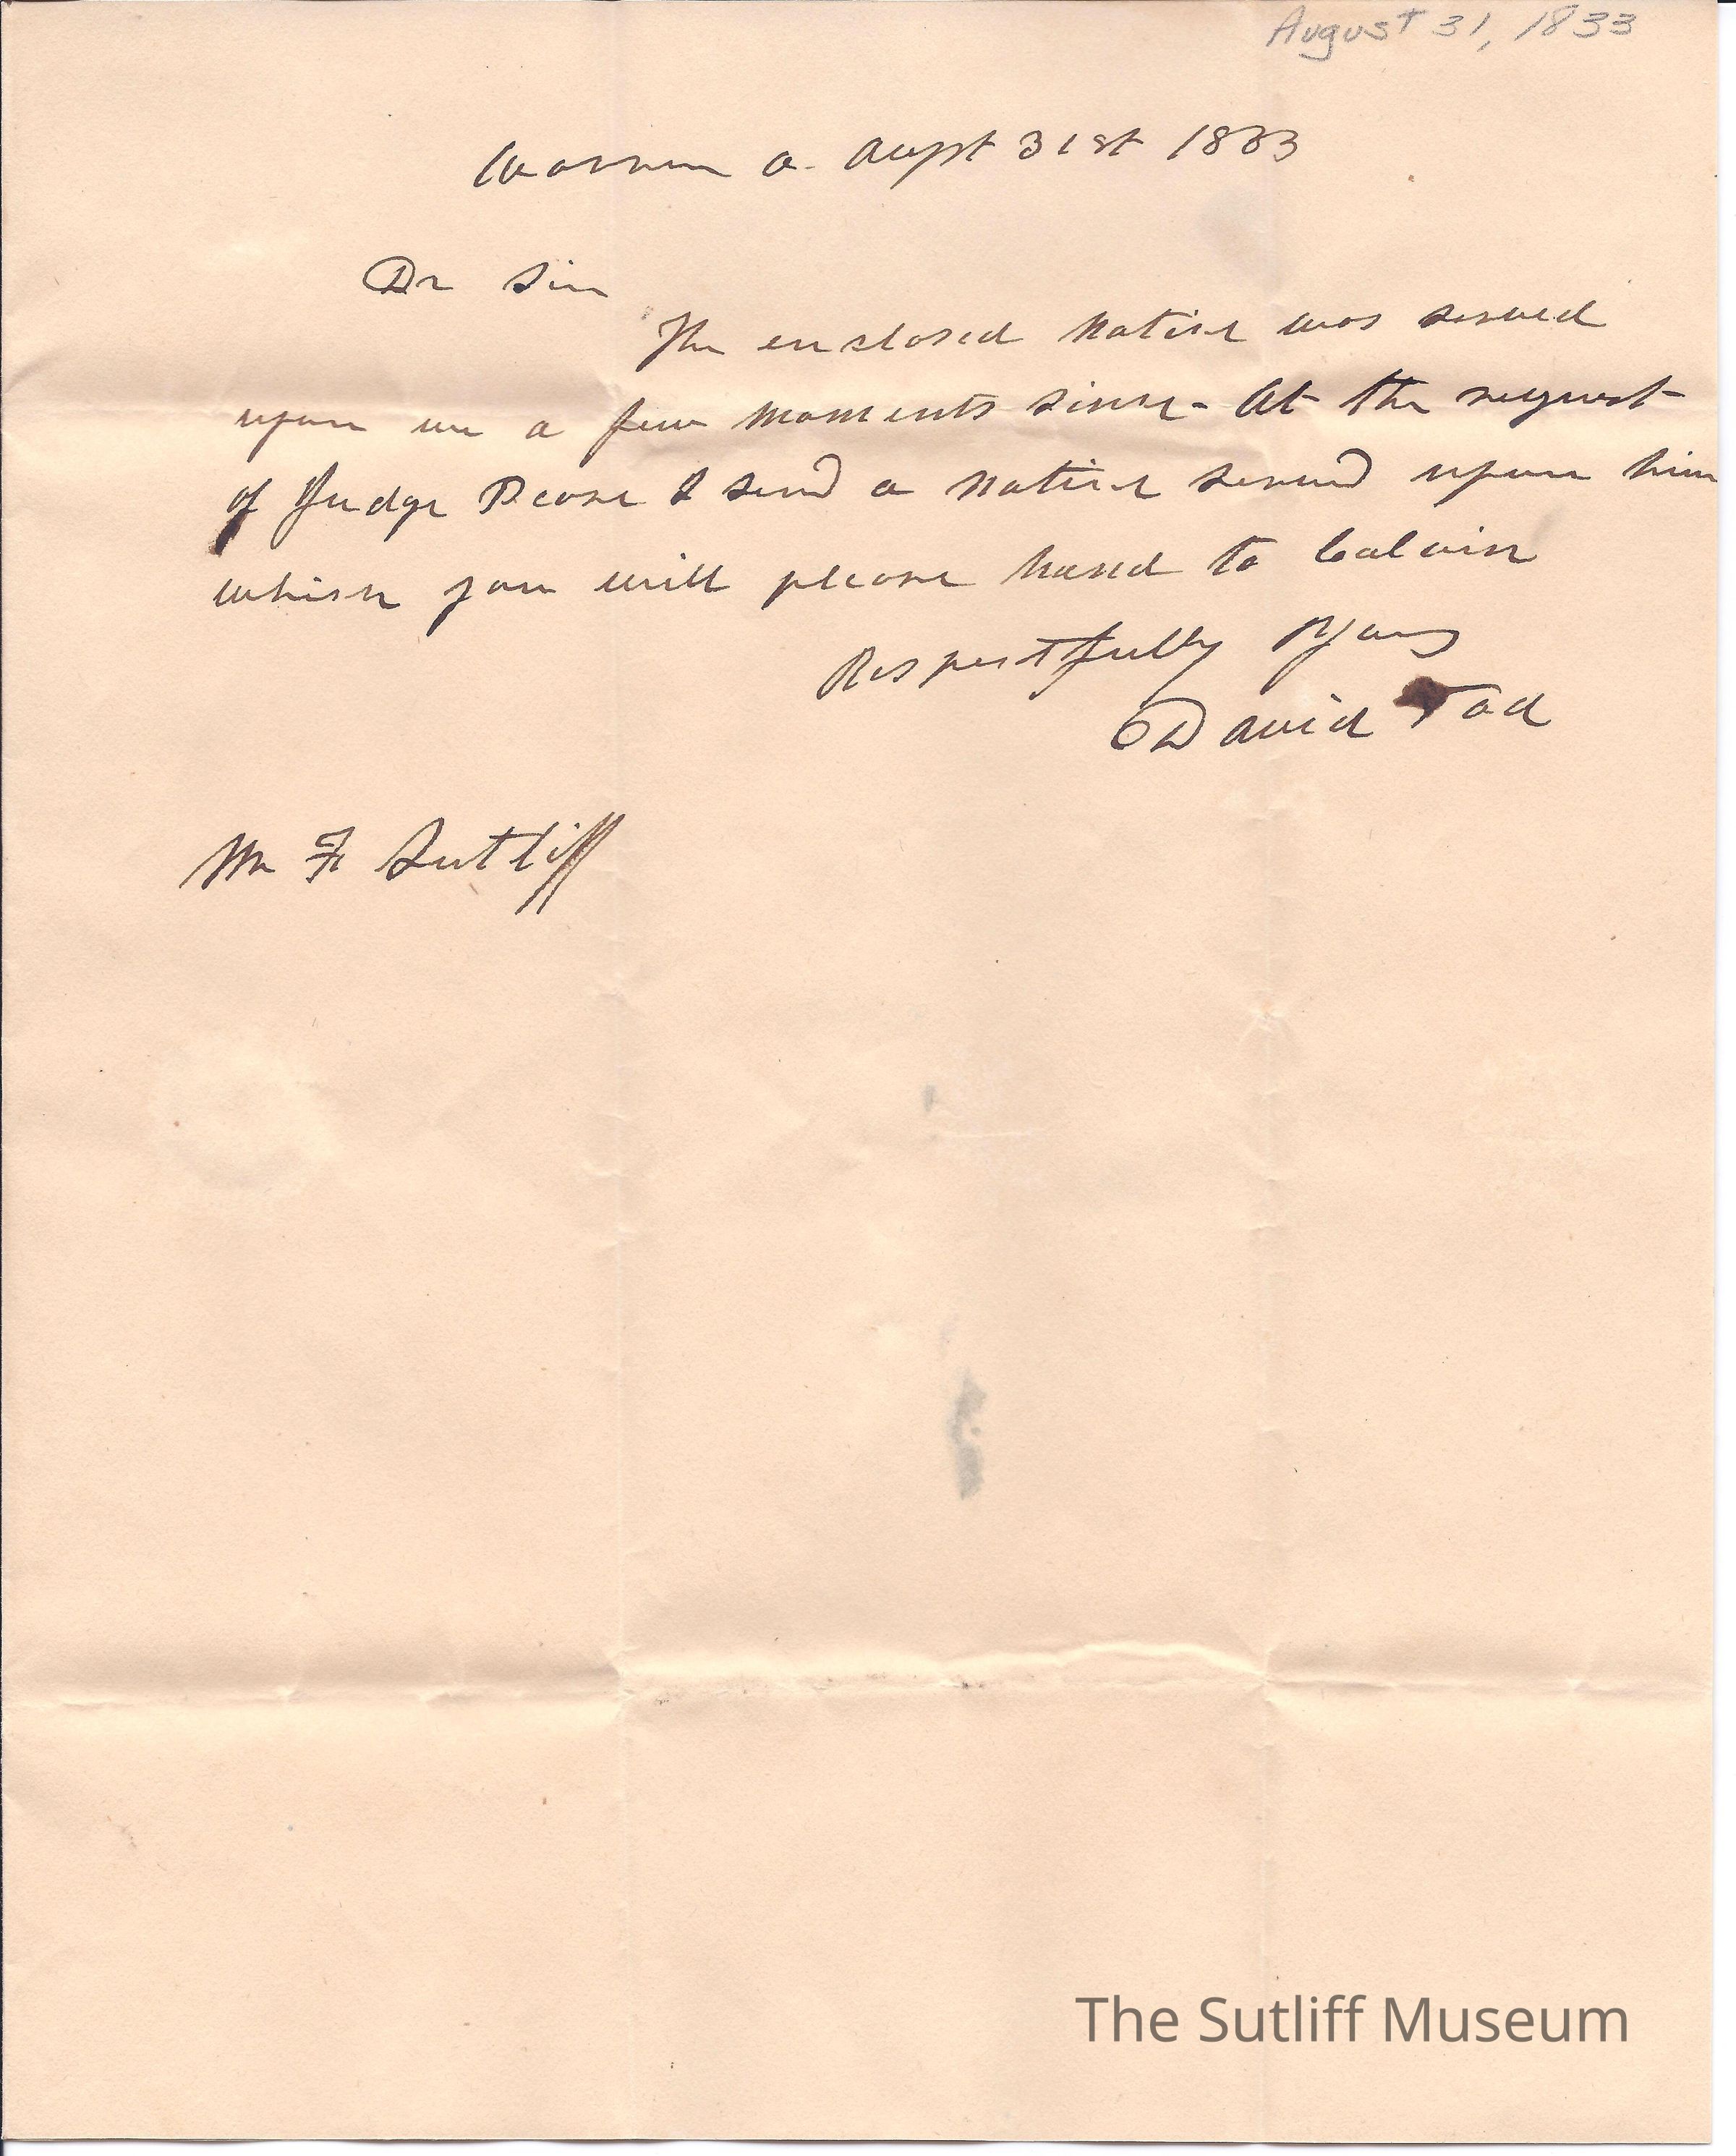 August 31, 1833
Warren O. Augst 31st 1833
Dr Sir
The enclosed notice was served
upon me a few moments since - At the request
of Judge Pease I send a notice served upon him
which you will please hand to Calvin
Respectfully Yours
David Tod
Mr F Sutliff
The Sutliff Museum